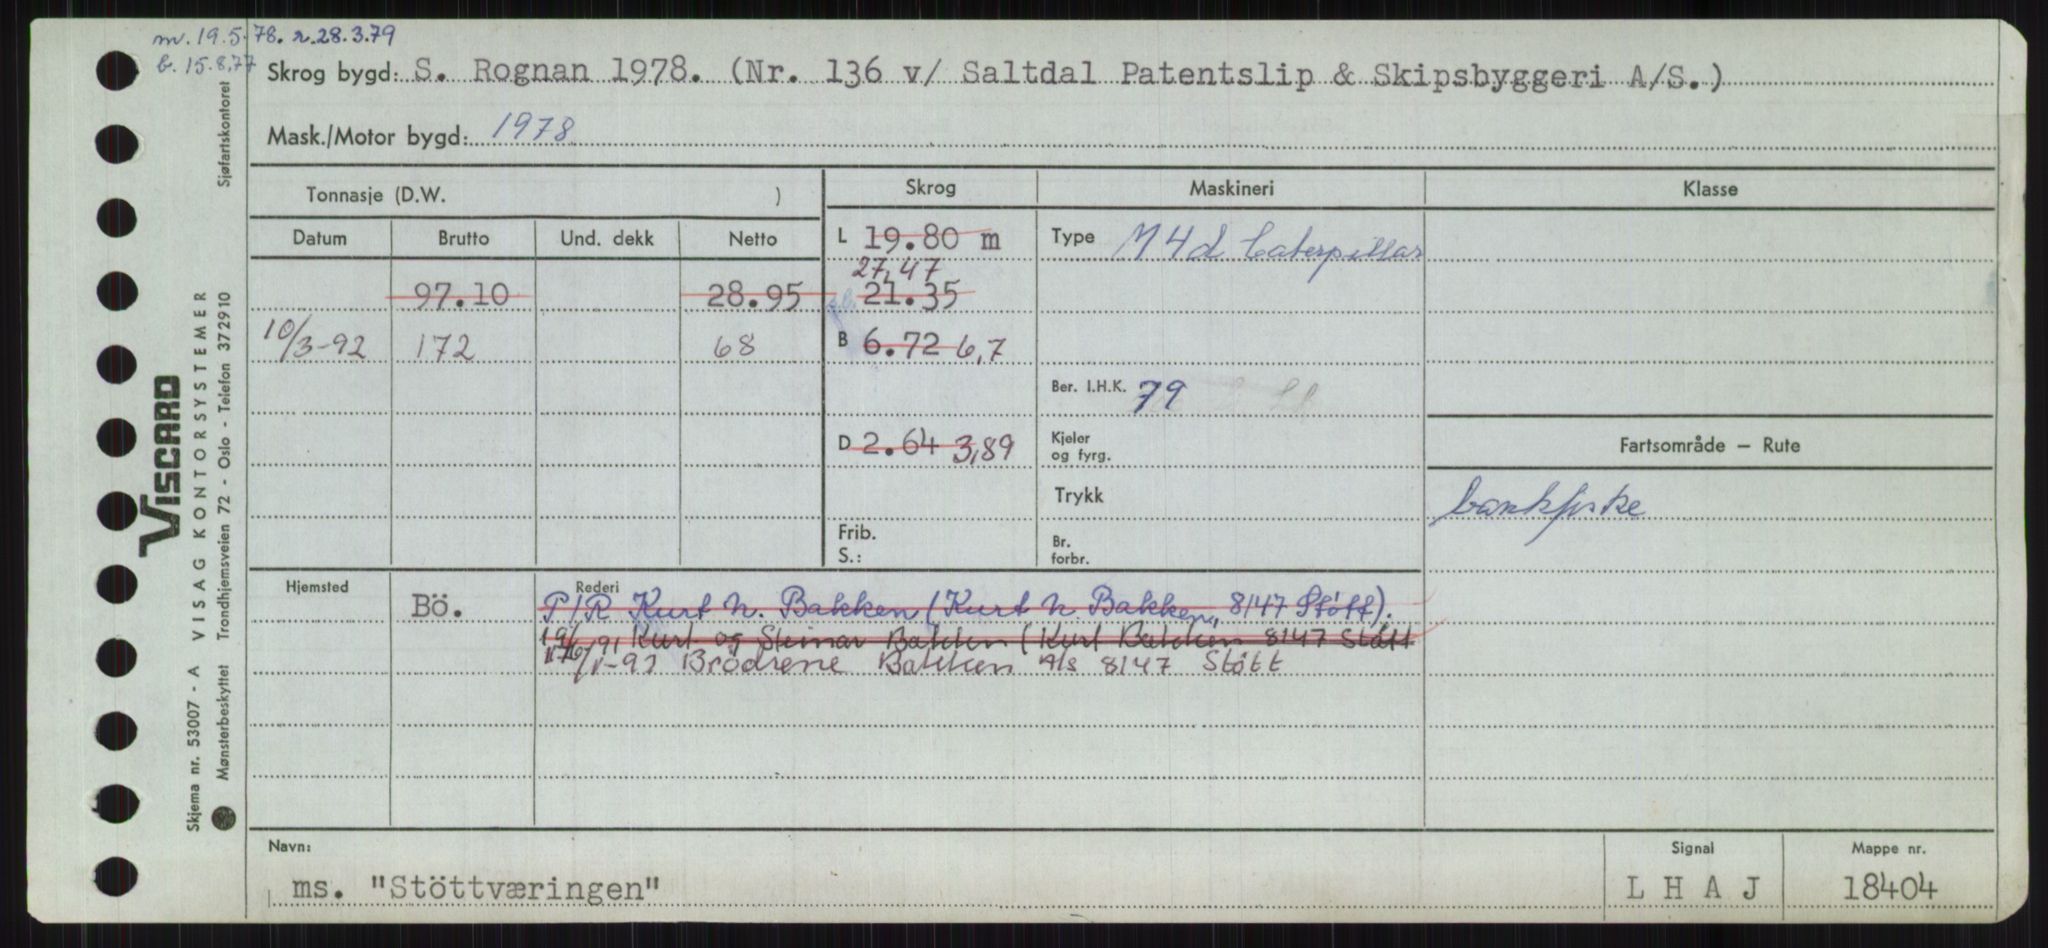 m. 19.5.78. r. 28.3.79
b. 15.8.77
Skrog bygd: S. Rognan 1978. (Nr. 136 v/ Saltdal Patentslip & Skipsbyggeri A/S.)
Mask./Motor bygd: 1978
Tonnasje (D.W. )
Skrog
Maskineri
Klasse
Datum Brutto Und. dekk Netto
L 19.80 m
Type M4d Caterpillar
27,47
97.10 28.95
21.35
10/3-92 172 68
B 6.72 6,7
Ber. I.H.K. 79
D 2.64 3,89
Kjeler
og fyrg.
Fartsområde – Rute
Trykk
bankfiske
Frib.
S.:
Br.
forbr.
Hjemsted
Rederi
Bö.
P/R Kurt N. Bakken (Kurt N. Bakken, 8147 Stött).
Kurt og Steinar Bakken (Kurt Bakken 8147 Stött
Brödrene Bakken A/s 8147 Stött
Navn:
ms. "Stöttværingen"
Signal
L H A J
Mappe nr.
18404
Skjema nr. 53007 - A VISAG KONTORSYSTEMER
Mønsterbeskyttet Trondhjemsveien 72 - Oslo - Telefon 372910
Sjøfartskontoret
VISCARD